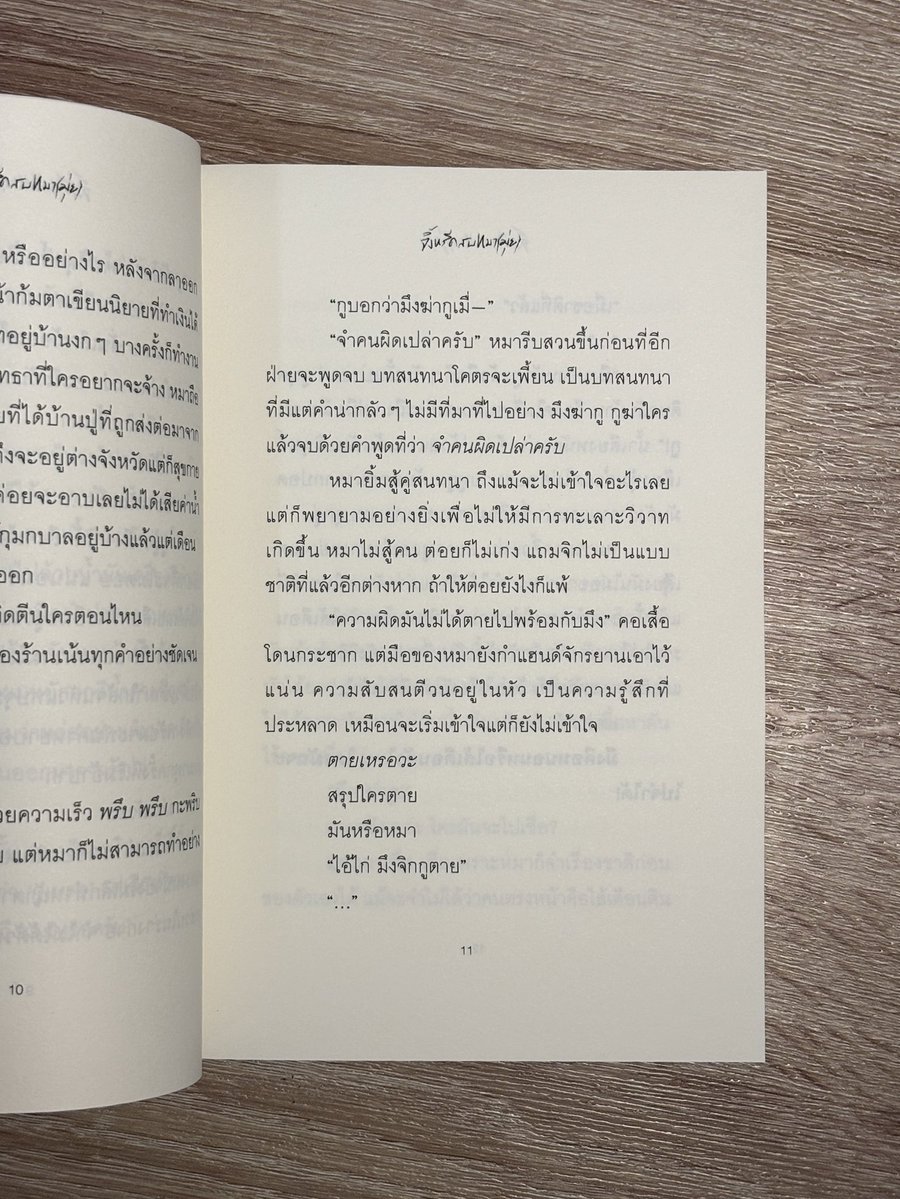 หรืออย่างไร หลังจากลาออก
น้าก้มตาเขียนนิยายที่ทำเงินได้
อยู่บ้านงก ๆ บางครั้งก็ทำงาน
ที่ใครอยากจะจ้าง หมาถือ
ที่ได้บ้านปู่ที่ถูกส่งต่อมาจาก
ถึงจะอยู่ต่างจังหวัดแต่ก็สุขกาย
ค่อยจะอาบเลยไม่ได้เสียค่าน้ำ
กุมกบาลอยู่บ้างแล้วแต่เดือน
ออก
ตีนใครตอนไหน
องร้านเน้นทุกคำอย่างชัดเจน
วยความเร็ว พรึบ พรึบ กะพริบ
แต่หมาก็ไม่สามารถทำอย่าง
10
จิ้งหรีดสบหมา(มุ่ย)
“กูบอกว่ามึงฆ่ากูเมื่—”
“จำคนผิดเปล่าครับ” หมารีบสวนขึ้นก่อนที่อีก
ฝ่ายจะพูดจบ บทสนทนาโคตรจะเพี้ยน เป็นบทสนทนา
ที่มีแต่คำน่ากลัวๆ ไม่มีที่มาที่ไปอย่าง มึงฆ่ากู กูฆ่าใคร
แล้วจบด้วยคำพูดที่ว่า จำคนผิดเปล่าครับ
หมายิ้มสู้คู่สนทนา ถึงแม้จะไม่เข้าใจอะไรเลย
แต่ก็พยายามอย่างยิ่งเพื่อไม่ให้มีการทะเลาะวิวาท
เกิดขึ้น หมาไม่สู้คน ต่อยก็ไม่เก่ง แถมจิกไม่เป็นแบบ
ชาติที่แล้วอีกต่างหาก ถ้าให้ต่อยยังไงก็แพ้
“ความผิดมันไม่ได้ตายไปพร้อมกับมึง” คอเสื้อ
โดนกระชาก แต่มือของหมายังกำแฮนด์จักรยานเอาไว้
แน่น ความสับสนตีวนอยู่ในหัว เป็นความรู้สึกที่
ประหลาด เหมือนจะเริ่มเข้าใจแต่ก็ยังไม่เข้าใจ
ตายเหรอวะ
สรุปใครตาย
มันหรือหมา
“ไอ้ไก่ มึงจิกกูตาย”
“...”
11